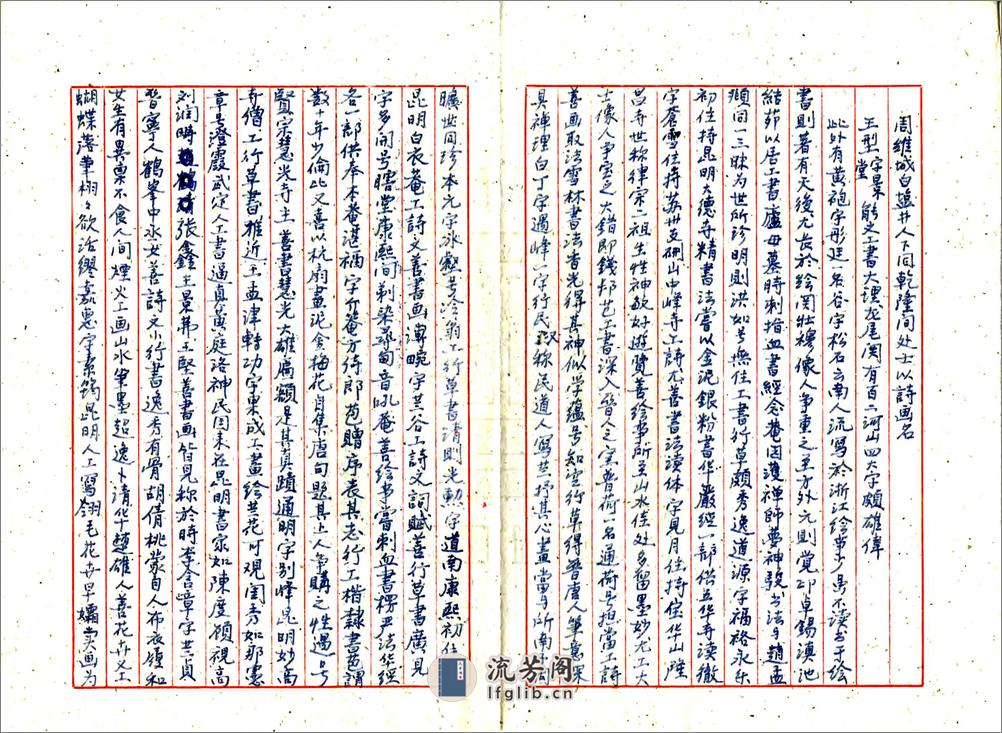 周維城白鹽井人下同乾隆間處士以詩画名
王型字景堂能文工書大理龙尾関有百二河山四大字頗雄偉
此外有黄袍字彤廷一名谷字松石云南人流寓於浙江绘事
書則著有天後尤長於绘関壮穆像人争重之至方外元則覚卬卓錫滇池
結茆以居工書廬母墓時刺指血書經念菴因濩禅師夢神駿书法与趙孟
頫同一三昧为世所珍明則洪如号無住工書行草頗秀逸道源字福裕永乐
初住持昆明大德寺精書法嘗以金泥銀粉書华嚴經一部偕五华寺读徹
字蒼雪住持苏州支硎山中峰寺工詩尤善書法读体字見月住持宝华山隆
昌寺世称律宗二祖生性神敏好遊覽善绘事所至山水佳处多留墨妙尤工大
士像人争宝之大錯即錢邡芑工書深入晉人之室普荷一名通荷号担當工詩
善画取法雪林書法香光得其神似学蕴号知空行草得晋唐人筆意深
具禅理白丁字過峰一字行民称民道人写兰抒其心畫當与所南同
曠世同珍本元字冰壑苦冷翁工行草書清則光勲字道南康熙初住
昆明白衣菴工詩文善書画溥畹字兰谷工詩文词賦善行草書廣見
字多闻号瞎堂康熙间剃染音吼菴善绘事嘗刺血書楞严法华經
各一部供奉本菴湛福字介菴方侍郎苞贈序表其志行工楷隸書芑謂
数十年少倫比又善以杭扇畫泥金梅花自集唐句題其上人争購之性過号
賢宗慧光寺主善書慧光大雄廣額是其真蹟通明字别峰昆明妙高
寺僧工行草書雅近王孟津轉功字東成工畫绘兰花可观闺秀如那憲
章号澄霞武定人工書逼真黄庭洛神民国来在昆明書家如陳度顾視高
刘润畴張鑫王景弗王堅善書画皆見称於時李含章字兰貞
晋寧人鶴峯中水女善詩文小行書逸秀有骨胡倩桃蒙自人布衣領和
女生有異禀不食人间煙火工画山水筆墨超逸卜清华十趙雄人善花卉文工
蝴蝶落筆栩々欲活缪嘉惠字素筠昆明人工寫翎毛花卉早孀卖画为
流芳阁
lfglib.cn